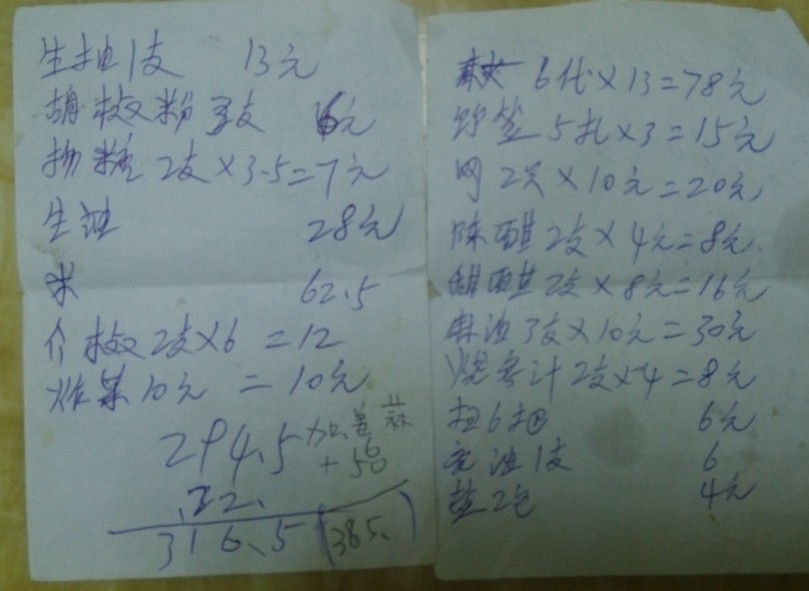 生抽1支 13元
胡椒粉3支 元
糖2支×3.5=7元
生油 28元
米 62.5
介椒2支×6 =12
炸菜10元 =10元
294.5 加姜蒜
+50
22.
316.5 (385.)
6代×13=78元
5扎×3=15元
网2只×10元=20元
陈醋2支×4元=8元
甜醋2支×8元=16元
麻油3支×10元=30元
烧 汁2支×4=8元
6扣 6元
油1支 6
盐2包 4元